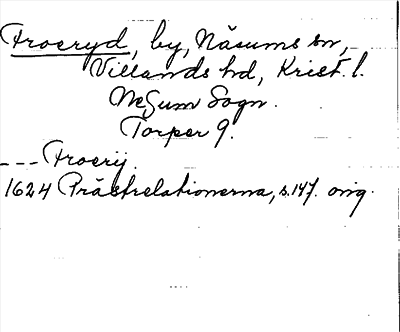 Froeryd, by, Näsums sn,
Villands hd, Krist. l.
Neßum Sogn.
Torper 9.
--- Froerij.
1624 Prästrelationerna, s.147. orig.